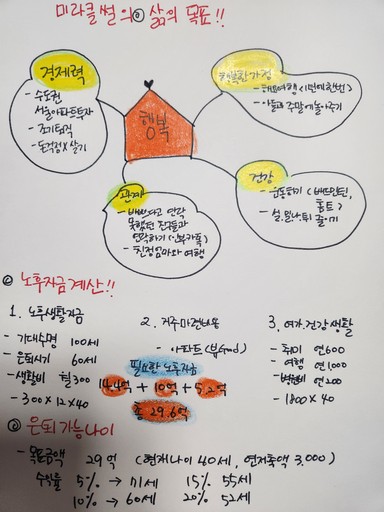 미라클썰의 삶의 목표!!
경제력
- 수도권
서울아파트투자
- 조기퇴직
- 돈걱정X 살기
행복
행복한가정
- 해외여행 (1년에한번)
- 아들과 주말에놀아주기
관계
- 바쁘다고 연락
못했던 친구들과
연락하기
- 친정엄마와 여행
건강
- 운동하기 (배드민턴,
골프)
줄이기
노후자금계산!!
1. 노후생활자금
- 기대수명 100세
- 은퇴시기 60세
- 생활비 월300
- 300×12×40
2. 거주마련비용
- 아파트
필요한 노후자금
14.4억 + 10억 + 5.2억
총 29.6억
3. 여가.건강생활
- 취미 연600
- 여행 연1000
- 연200
- 1800×40
은퇴가능나이
- 목표금액 29억 (현재나이 40세, 연저축액 3,000)
수익률 5% → 71세 15% 55세
10% → 60세 20% 52세